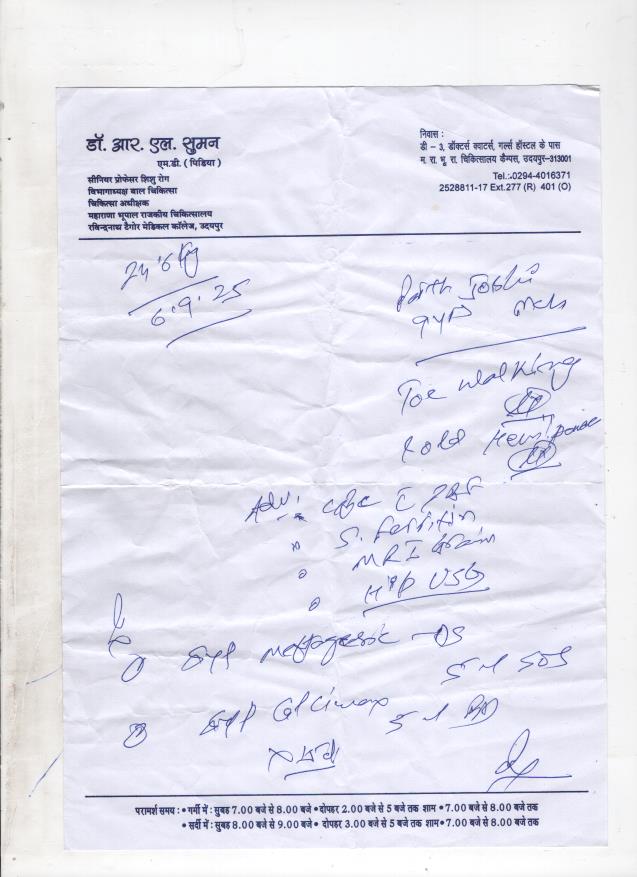 डॉ. आर. एल. सुमन
एम.डी. (पिडिया)
सीनियर प्रोफेसर शिशु रोग
विभागाध्यक्ष बाल चिकित्सा
चिकित्सा अधीक्षक
महाराणा भूपाल राजकीय चिकित्सालय
रविन्द्रनाथ टैगोर मेडिकल कॉलेज, उदयपुर
निवास :
डी – 3, डॉक्टर्स क्वाटर्स, गर्ल्स हॉस्टल के पास
म. रा. भू. रा. चिकित्सालय कैम्पस, उदयपुर-313001
Tel.:-0294-4016371
2528811-17 Ext.277 (R) 401 (O)
6.9.25
Parth Joshi
Toe walking
Adv:
S. Ferritin
MRI Brain
Hip USG
Syp
5 ml SOS
Syp 5 ml BD
परामर्श समय : • गर्मी में : सुबह 7.00 बजे से 8.00 बजे • दोपहर 2.00 से 5 बजे तक शाम • 7.00 बजे से 8.00 बजे तक
• सर्दी में : सुबह 8.00 बजे से 9.00 बजे • दोपहर 3.00 बजे से 5 बजे तक शाम • 7.00 बजे से 8.00 बजे तक